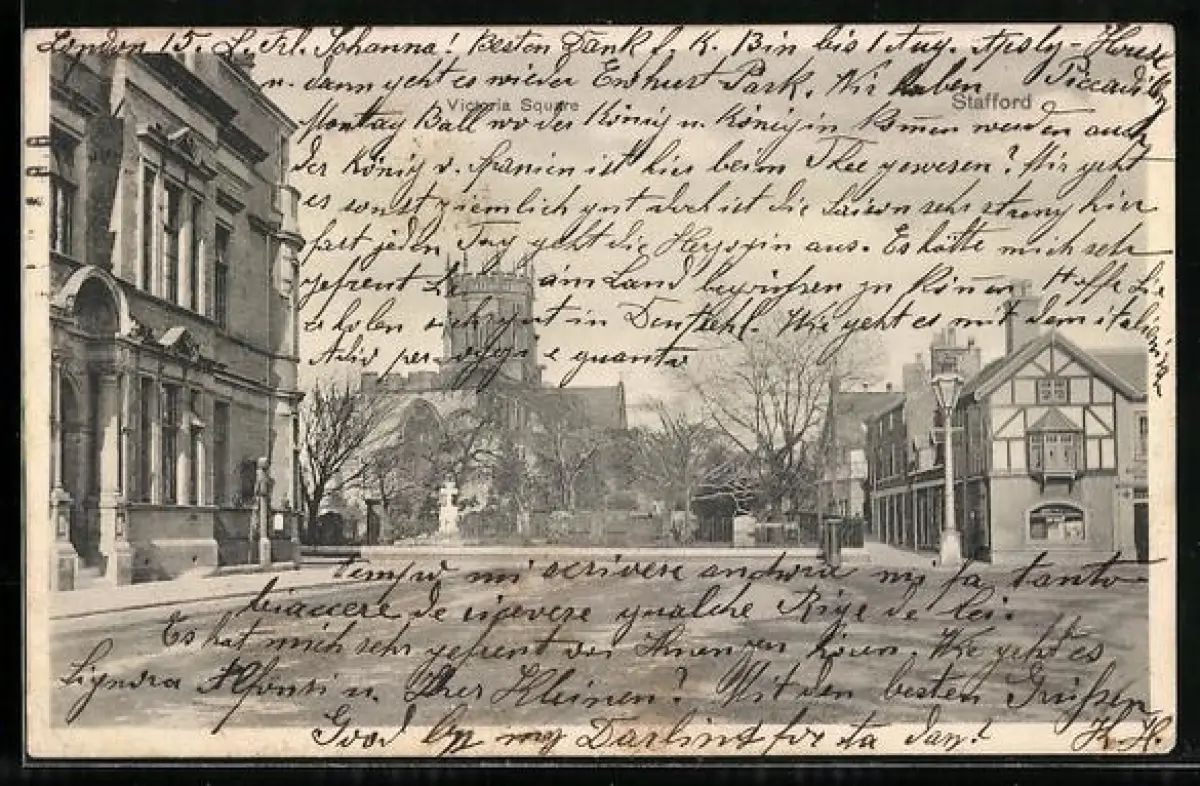 London 15. L. Frl. Johanna! Besten Dank f. K. Bin bis 1 Aug. Apsly-House
u. dann geht es wieder Ewhurst Park. Wir haben Piccadilly
Victoria Square
Stafford
Montag Ball wo der König u. Königin kommen werden auch
der König v. Spanien ist hier beim Thee gewesen? Mir geht
es sonst ziemlich gut doch ist die Saison sehr streng hier
fast jeden Tag geht die Herzogin aus. Es hätte mich sehr
gefreut Sie am Land begrüssen zu können Hoffe Sie
erholen sich gut in Deutschl. Wie geht es mit dem italienisch
Adio per oggi e quanto
tempo mi scrivere mi fa tanto
piacere de ricevere qualche Rige de lei.
Es hat mich sehr gefreut von Ihnen zu hören. Wie geht es
Signora Alfonsi u. Ihrer Kleinen? Mit den besten Grüssen
Good by my Darling for ta day! H. H.